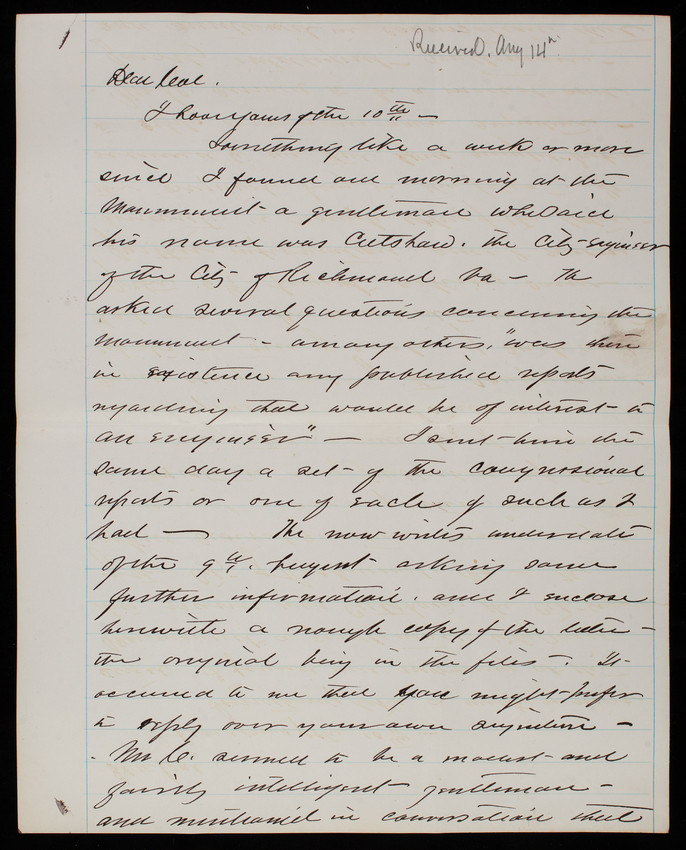 Received. Aug 14th
Dear Col.
I have yours of the 10th —
Something like a week or more
since I found one morning at the
Monument a gentleman who said
his name was Cutshaw. the City-Engineer
of the City of Richmond Va — He
asked several questions concerning the
monument - among others, "was there
in existence any published reports
regarding that would be of interest to
an engineer" — I sent him the
same day a set of the congressional
reports or one of each of such as I
had — He now writes under date
of the 9th. asking some
further information. and I enclose
herewith a rough copy of the letter —
the original being in the files —. It
occurred to me that you might prefer
to reply over your own signature —
Mr C. seemed to be a modest and
fairly intelligent gentleman —
and mentioned in conversation that